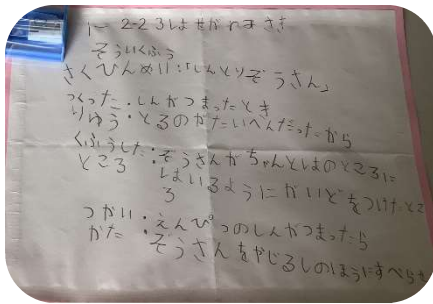 1-2-23 しよ せがわ まさき
そういくふう
さくひんめい:「しんとりぞうさん」
つくった・しんがつまったとき
りゆう・とるのがたいへんだったから
くふうした・ぞうさんがちゃんとはのところに
ところ はいるようにがいどをつけたとこ
ろ
つかい・えんぴつのしんがつまったら
かた・ぞうさんをやじるしのほうにすべらか